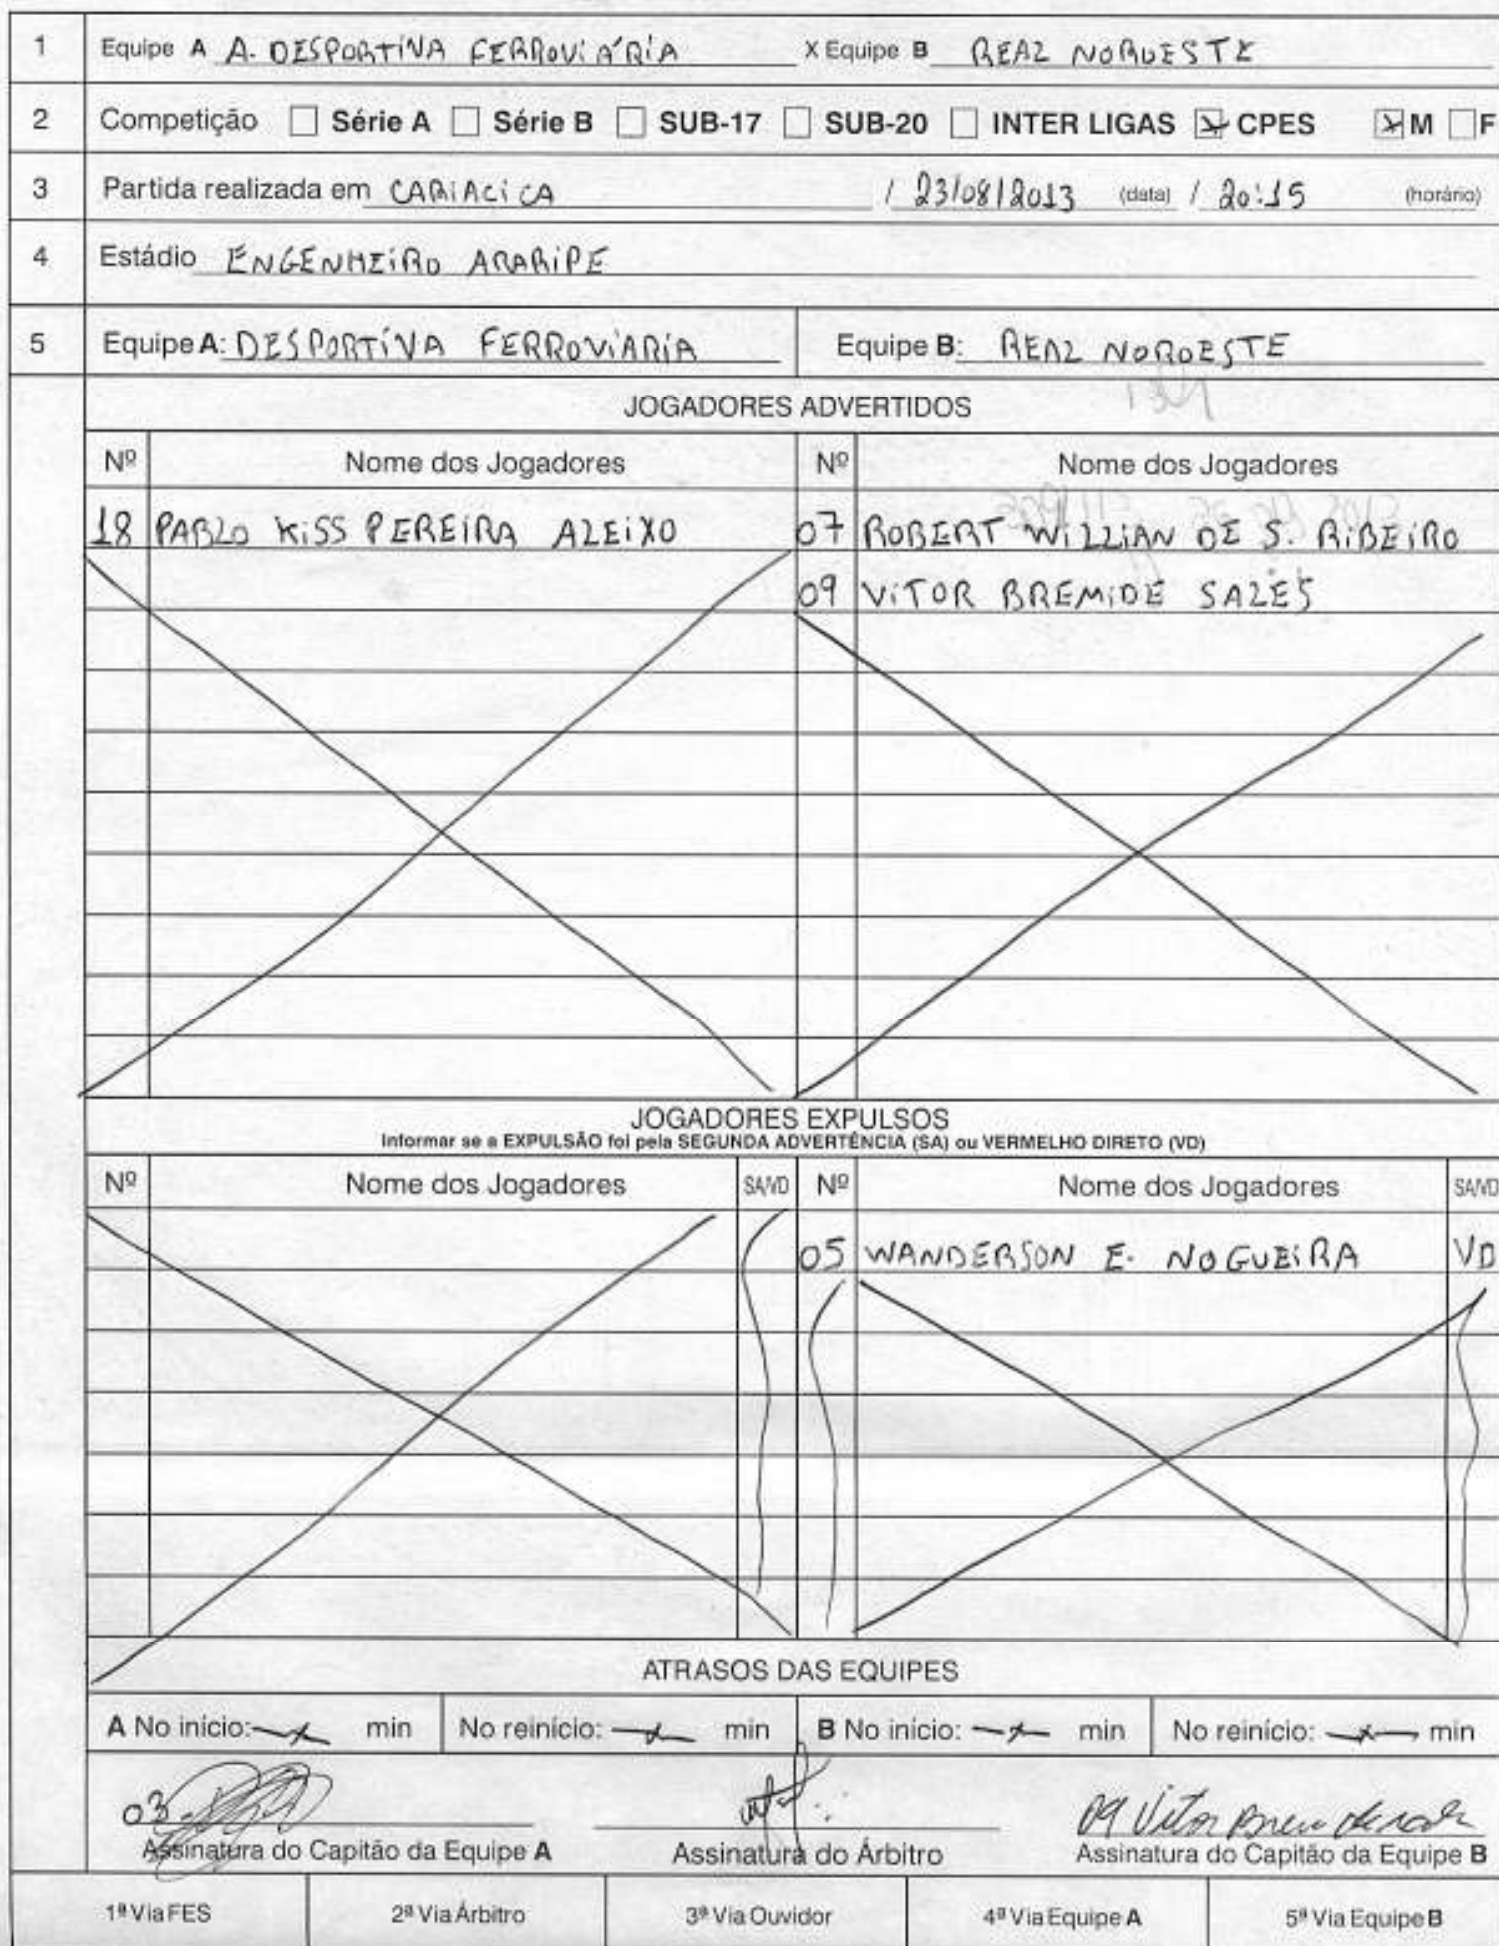 1 Equipe A A. DESPORTIVA FERROVIÁRIA X Equipe B REAL NOROESTE
2 Competição Série A Série B SUB-17 SUB-20 INTER LIGAS CPES M F
3 Partida realizada em CARIACICA / 23/08/2013 (data) / 20:15 (horário)
4 Estádio ENGENHEIRO ARARIPE
5 Equipe A: DESPORTIVA FERROVIARIA Equipe B: REAL NOROESTE
JOGADORES ADVERTIDOS
Nº Nome dos Jogadores Nº Nome dos Jogadores
18 PABLO KISS PEREIRA ALEIXO 07 ROBERT WILLIAN DE S. RIBEIRO
09 VITOR BREMIDE SALES
JOGADORES EXPULSOS
Informar se a EXPULSÃO foi pela SEGUNDA ADVERTÊNCIA (SA) ou VERMELHO DIRETO (VD)
Nº Nome dos Jogadores SA/VD Nº Nome dos Jogadores SA/VD
05 WANDERSON E. NOGUEIRA VD
ATRASOS DAS EQUIPES
A No início: min No reinício: min B No início: min No reinício: min
03 09 Vitor
Assinatura do Capitão da Equipe A Assinatura do Árbitro Assinatura do Capitão da Equipe B
1ª Via FES 2ª Via Árbitro 3ª Via Ouvidor 4ª Via Equipe A 5ª Via Equipe B